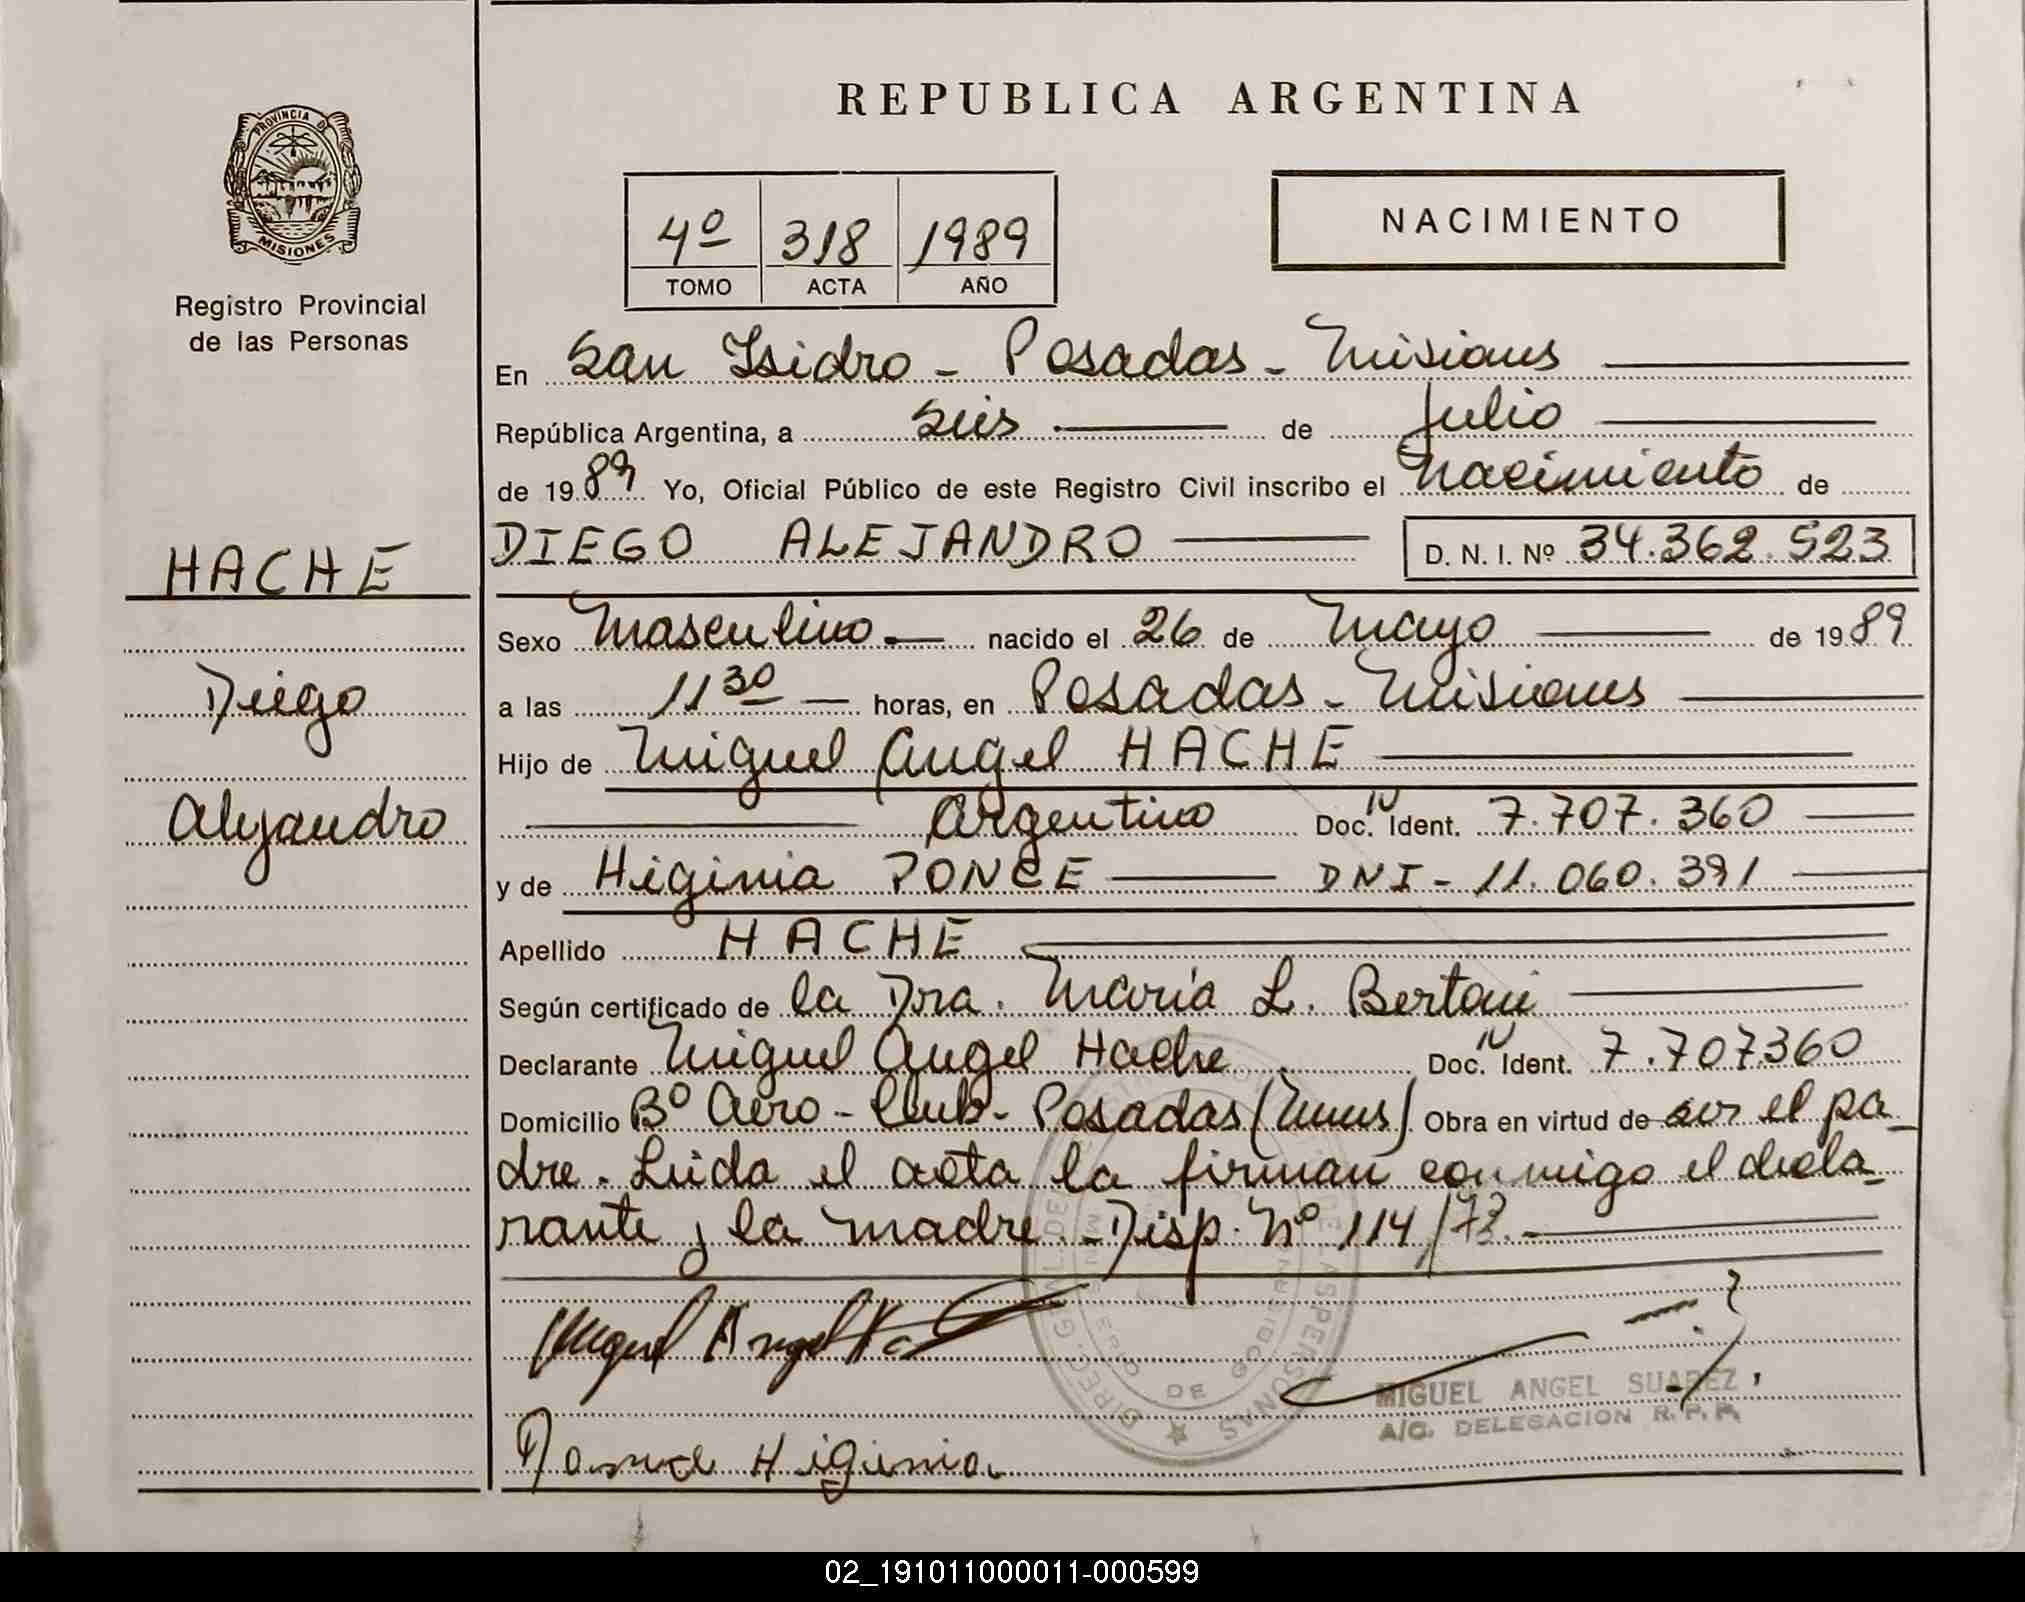 REPUBLICA ARGENTINA
PROVINCIA DE
MISIONES
Registro Provincial
de las Personas
4º 318 1989
TOMO ACTA AÑO
NACIMIENTO
En San Isidro - Posadas - Misiones
República Argentina, a seis de Julio
de 1989 Yo, Oficial Público de este Registro Civil inscribo el Nacimiento de
DIEGO ALEJANDRO D. N. I. Nº 34.362.523
HACHE
Diego
Alejandro
Sexo Masculino nacido el 26 de Mayo de 1989
a las 11 30 horas, en Posadas - Misiones
Hijo de Miguel Angel HACHE
Argentino Doc. N Ident. 7.707.360
y de Higinia PONCE DNI - 11.060.391
Apellido HACHE
Según certificado de la Dra. Maria L. Bertoni
Declarante Miguel Angel Hache Doc. N Ident. 7.707360
Domicilio Bº Aero - Club - Posadas (Mnes) Obra en virtud de ser el pa
dre. Leida el acta la firman conmigo el decla
rante y la madre. - Disp. Nº 114/73.
Miguel Angel
MIGUEL ANGEL SUAREZ
A/C. DELEGACION R. P. P.
Ponce Higinia
02_191011000011-000599